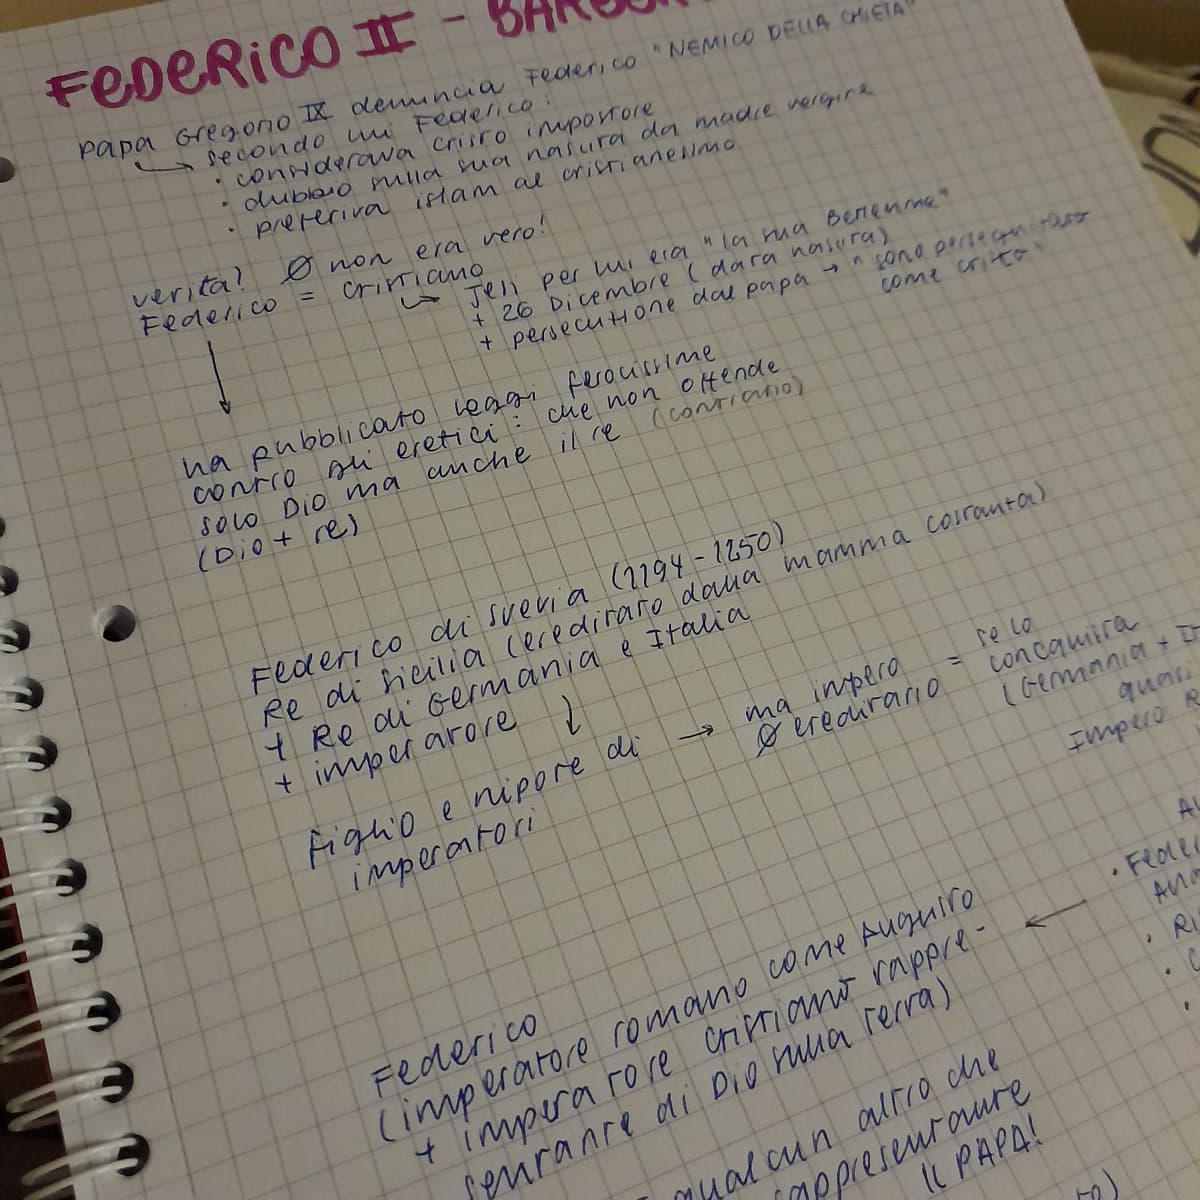 FEDERICO II - BARB
papa Gregorio IX denuncia Federico "NEMICO DELLA CHIESA"
↳ secondo lui Federico:
· considerava cristo impostore
· dubbio sulla sua nascita da madre vergine
· preferiva islam al cristianesimo
verità? Ø non era vero!
Federico = cristiano
↳ Jesi per lui era "la sua Betlemme"
+ 26 Dicembre (data nascita)
+ persecuzione dal papa → "sono perseguitato
come cristo"
ha pubblicato leggi ferocissime
contro gli eretici: che non offende
solo Dio ma anche il re (contrario)
(Dio + re)
Federico di svevia (1194-1250)
Re di sicilia (ereditato dalla mamma costanza)
+ Re di Germania e Italia
+ imperatore
↓
figlio e nipote di
imperatori
→ ma impero
Ø ereditario
= se lo
conquista
(Germania + It
quasi
Impero R
· Feder
Federico
(imperatore romano come Augusto
+ imperatore cristiano rappre-
sentante di Dio sulla terra)
qualcun altro che
rappresentante
il PAPA!